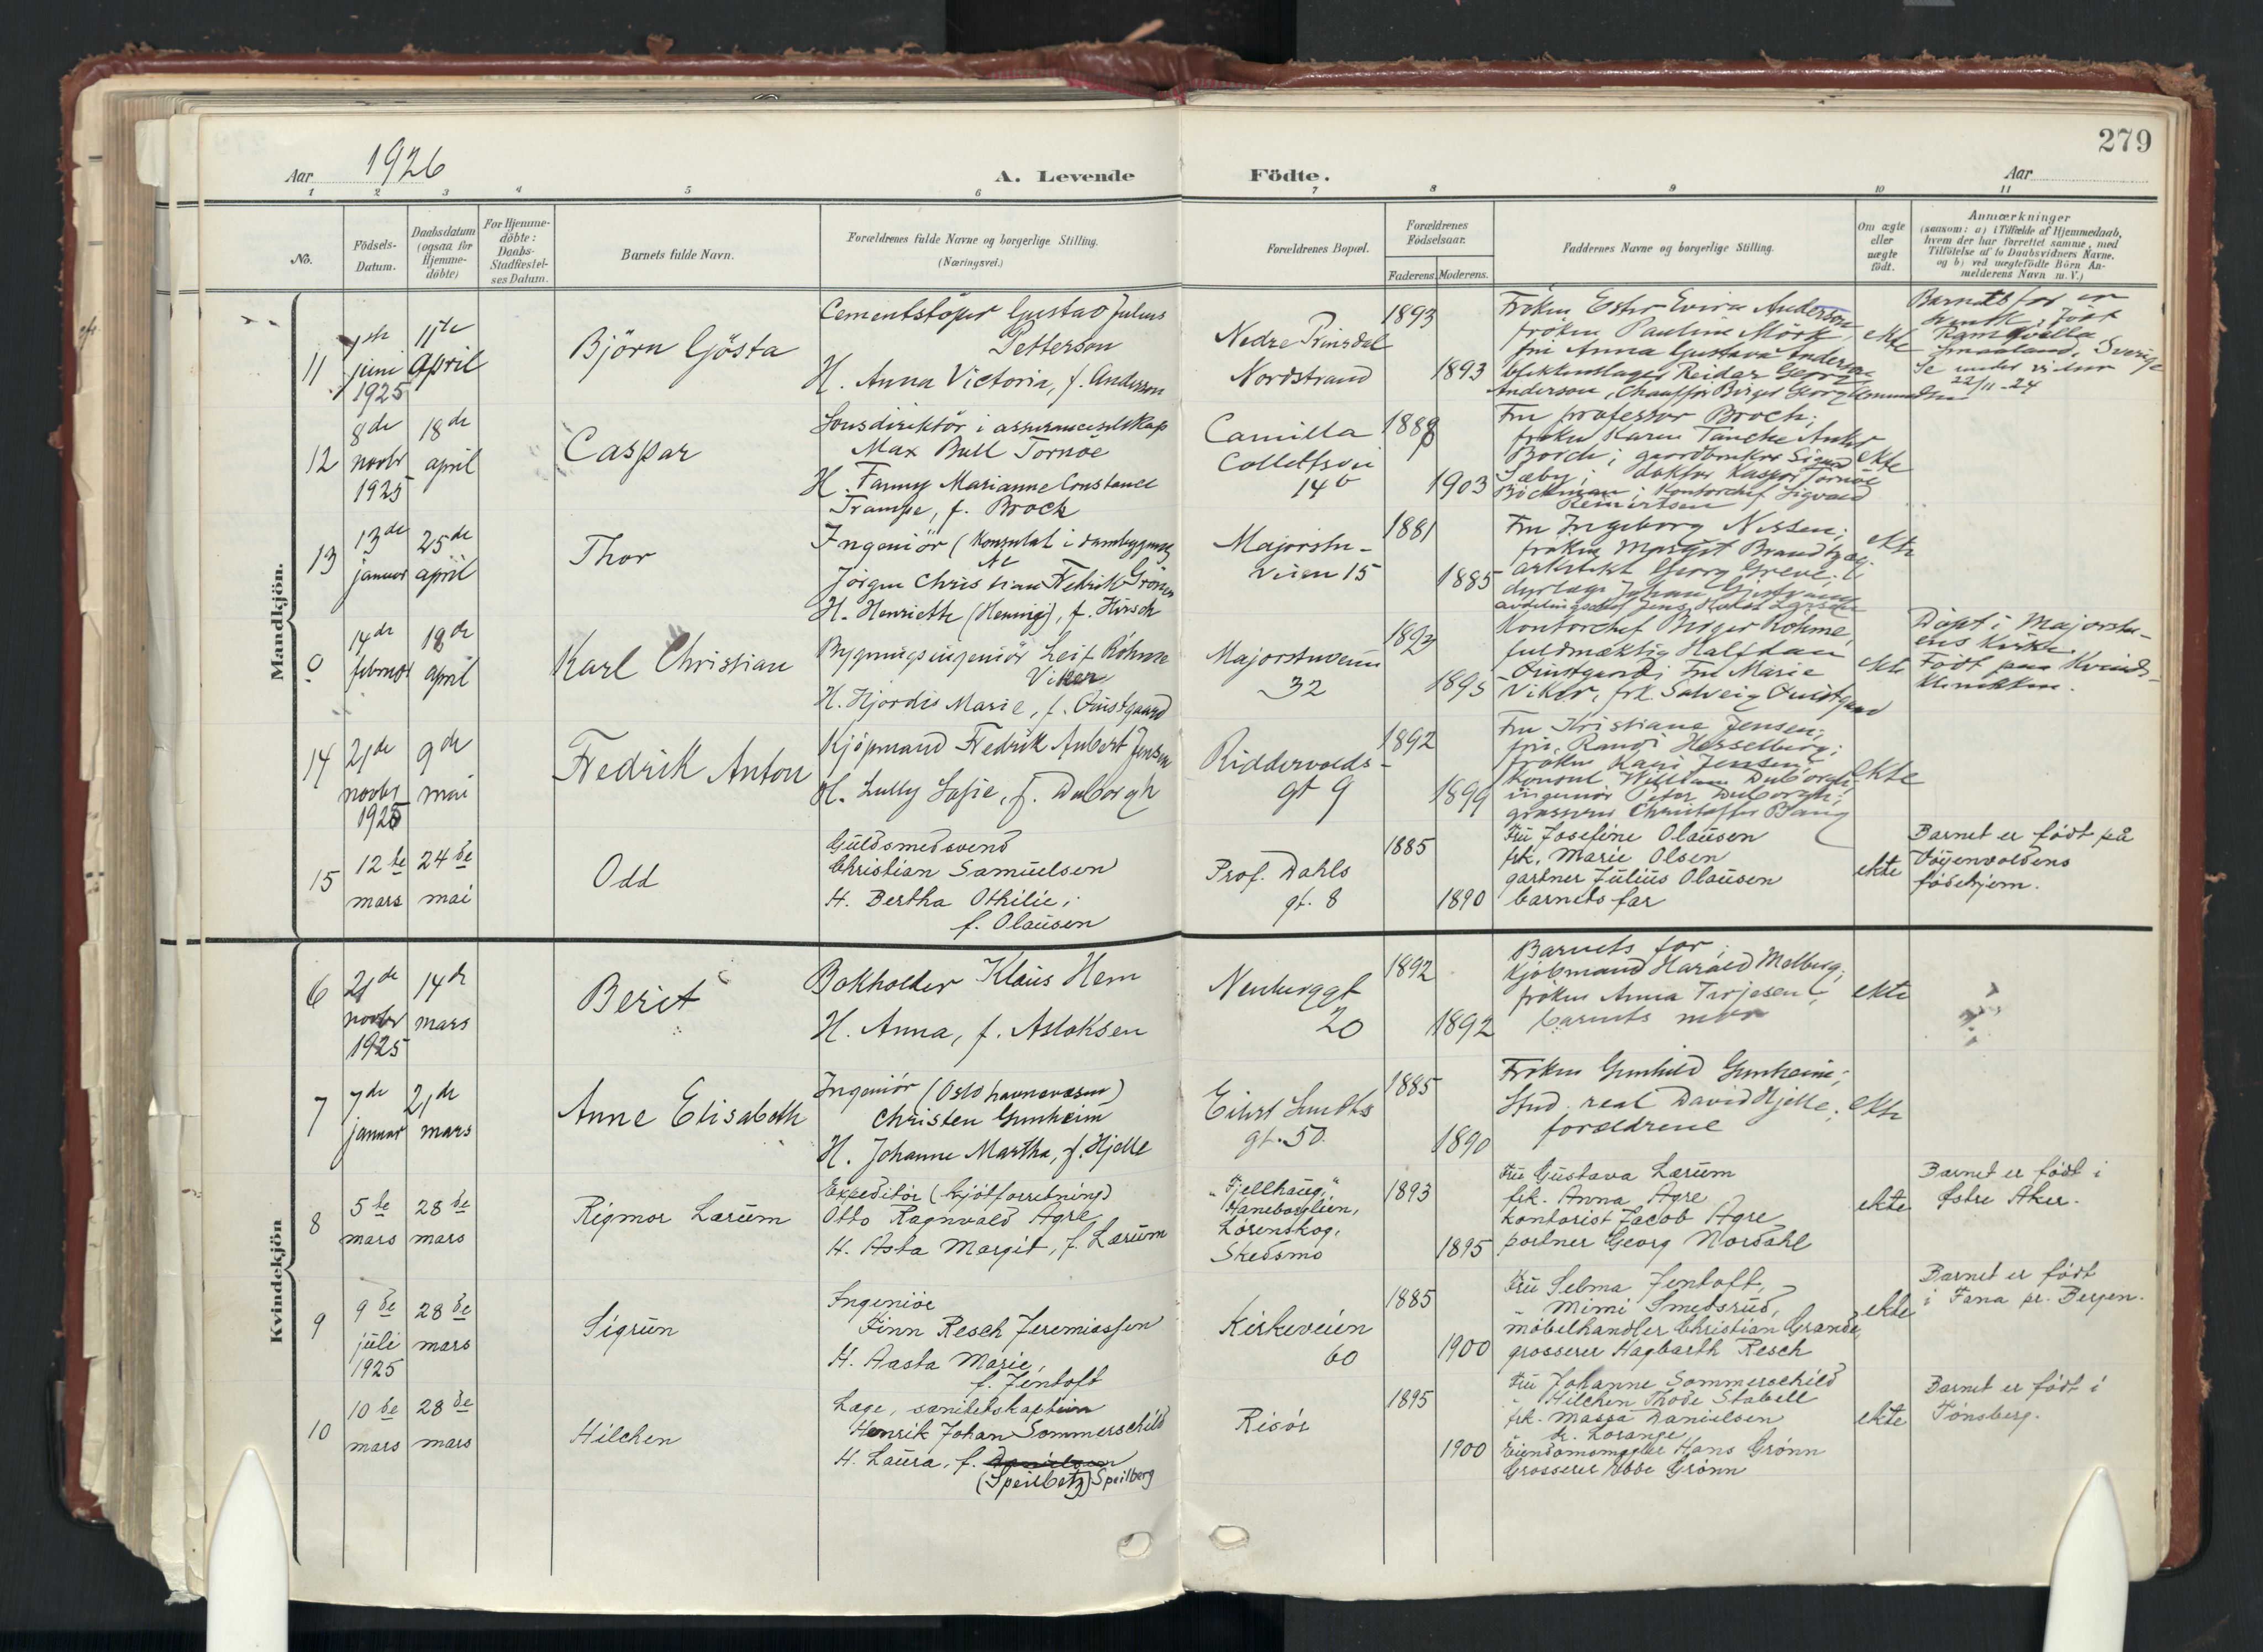 279
Aar 1926
A. Levende
Födte.
Aar
1 2 3 4 5 6 7 8 9 10 11
No.
Födsels-
Datum.
Daabsdatum
(ogsaa for
Hjemme-
döbte)
For Hjemme-
döbte:
Daabs-
Stadfæstel-
ses Datum.
Barnets fulde Navn.
Forældrenes fulde Navne og borgerlige Stilling.
(Næringsvei.)
Forældrenes Bopæl.
Forældrenes
Födselsaar.
Faderens. Moderens.
Faddernes Navne og borgerlige Stilling.
Om ægte
eller
uægte
födt.
Anmærkninger
(saasom: a) i Tilfælde af Hjemmedaab,
hvem der har forrettet samme, med
Tilföielse af to Daabsvidners Navne,
og b) ved uægtefödte Börn An-
melderens Navn m. V.)
Mandkjön.
11
juni
1925
11te
april
Björn Gösta
Cementstöper Gustav Julius
Petterson
H. Anna Victoria, f. Anderson
Nedre Prinsdal
Nordstrand
1893
1893
Fröken Ester Evira Anderson
fröken Pauline Mörk,
fru Anna Gustava Anderson
Anderson, Chaufför Birger Georg
ekte
Barnets far er
svensk, född
Sverige
22/11-24
12
8de
novbr
1925
18de
april
Caspar
i assuranceselskap
Max Bull Tornöe
H. Fanny Marianne Constance
Trampe, f. Broch
Camilla
Collettsvei
14b
1888
1903
Fru professor Broch;
fröken Karen Tanche Anker
Broch; gaardbruker Sigurd
Sæby; doktor Kasper Tornöe
Böckman; Kontorchef Sigvald
ekte
13
13de
januar
25de
april
Thor
Ingeniör (Konsulat i dambygning
Jörgen Christian Fredrik Gröner
H. Henriette (Henny), f. Hirsch
Majorstu-
veien 15
1881
1885
Fru Ingeborg Nissen;
fröken Margit Brandtzæg;
arkitekt Georg Greve;
ekte
0
14de
februar
18de
april
Karl Christian
Bygningsingeniör Leif Röhme
Viker
H. Hjördis Marie, f. Quistgaard
Majorstuveien
32
1892
1895
Kontorchef Birger Röhme,
fuldmæktig Halfdan
Quistgaard; Fru Marie
Viker, frk. Solveig Quistgaard
ekte
Döpt i Majorstu-
ens Kirke.
Födt paa Kvinde-
klinikken.
14
21de
novbr
1925
9de
mai
Fredrik Anton
Kjöpmand Fredrik Aubert Jensen
H. Lully Sofie, f. Duborgh
Riddervolds-
gt 9
1892
1899
Fru Kristiane Jensen;
fru Randi Hesselberg;
fröken Kari Jensen;
konsul William Duborgh;
ingeniör Peter Duborgh;
grosserer Christoffer Bang
ekte
15
12te
mars
24de
mai
Odd
Guldsmedsvend
Christian Samuelsen
H. Bertha Othilie;
f. Olausen
Prof. Dahls
gt. 8
1885
1890
Fru Josefine Olausen
frk. Marie Olsen
gartner Julius Olausen
barnets far
ekte
Barnet er født på
Vöyenvoldens
fødehjem.
Kvindekjön
6
21de
novbr
1925
14de
mars
Berit
Bokholder Klaus Hem
H. Anna, f. Aslaksen
Neuberggt
20
1892
1892
Barnets far;
Kjöbmand Harald Melberg;
fröken Anna Tarjesen;
barnets mor
ekte
7
7de
januar
21de
mars
Anne Elisabeth
Ingeniör (Oslo havnevæsen)
Christen Gunheim
H. Johanne Martha, f. Hjelle
Eilert Sundts
gt. 50
1885
1890
Fröken Gunhild Gunheim;
Stud. real David Hjelle;
foreldrene
ekte
8
5te
mars
28de
mars
Rigmor Lærum
Expeditör (kjötforretning)
Otto Ragnvald Agre
H. Asta Margit, f. Lærum
"Fjellhaug,"
Hanebollien,
Lørenskog,
Skedsmo
1893
1895
Fru Gustava Lærum
frk. Anna Agre
kontorist Jacob Agre
portner Georg Nordahl
ekte
Barnet er født i
Østre Aker.
9
9de
juli
1925
28de
mars
Sigrun
Ingeniør
Finn Resch Jeremiassen
H. Aasta Marie,
f. Jentoft
Kirkeveien
60
1885
1900
Fru Selma Jentoft,
" Mimi Smedsrud,
møbelhandler Christian Grande,
grosserer Hagbarth Resch
ekte
Barnet er født
i Fana pr. Bergen.
10
10de
mars
28de
mars
Hilchen
Læge, sanitetskaptein
Henrik Johan Sommerschild
H. Laura, f. Danielsen
(Speilbetz) Speilberg
Risör
1895
1900
Fru Johanne Sommerschild
" Hilchen Thode Stabell
frk. Massa Danielsen
dr. Lorange
Eiendomsmægler Hans Grönn
Grosserer Ebbe Grönn
ekte
Barnet er født i
Tönsberg.